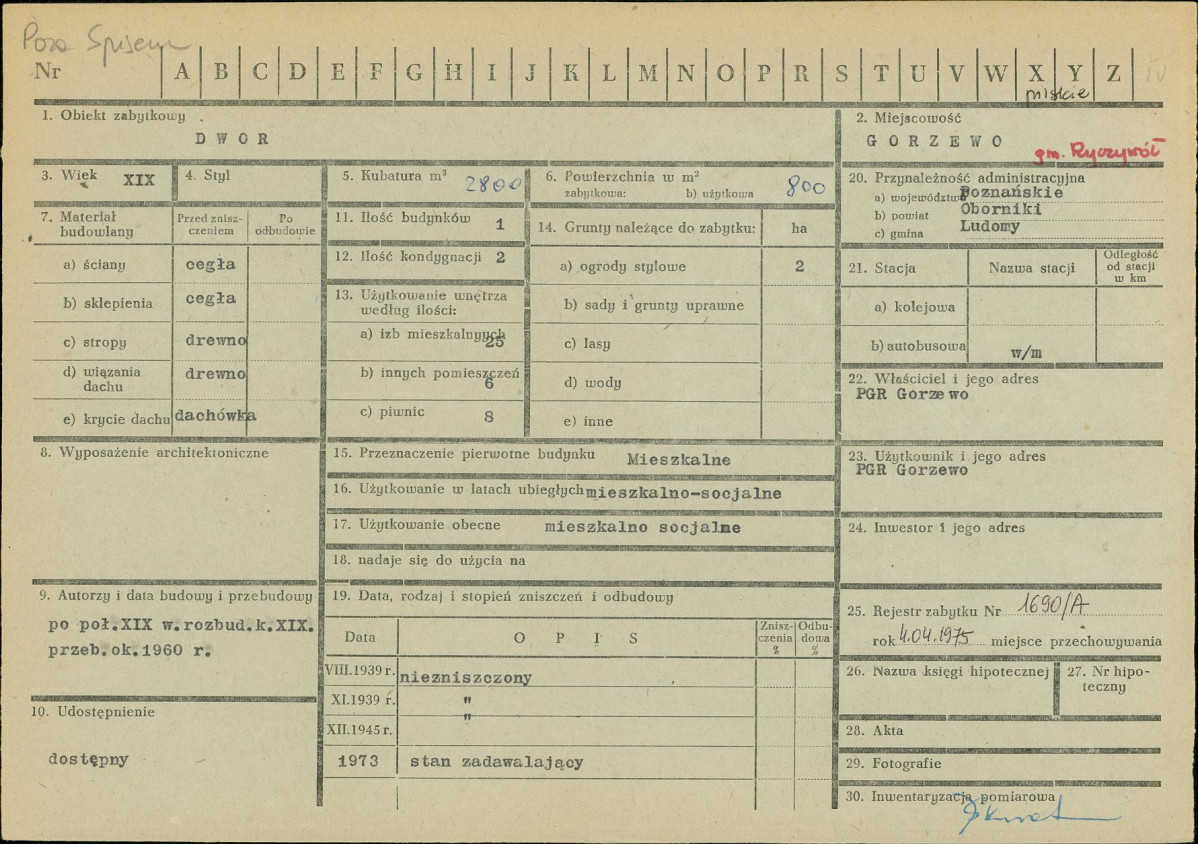 Poza Spisem
Nr A B C D E F G H I J K L M N O P R S T U V W X Y Z IV
pilskie
1. Obiekt zabytkowy
DWOR
2. Miejscowość
GORZEWO
gm. Ryczywół
3. Wiek XIX
4. Styl
5. Kubatura m³ 2800
6. Powierzchnia w m²
zabytkowa: b) użytkowa 800
20. Przynależność administracyjna
a) województwo Poznańskie
b) powiat Oborniki
c) gmina Ludomy
7. Materiał budowlany
Przed znisz-
czeniem
Po
odbudowie
a) ściany cegła
b) sklepienia cegła
c) stropy drewno
d) wiązania
dachu drewno
e) krycie dachu dachówka
11. Ilość budynków 1
12. Ilość kondygnacji 2
13. Użytkowanie wnętrza
według ilości:
a) izb mieszkalnych 25
b) innych pomieszczeń 6
c) piwnic 8
14. Grunty należące do zabytku: ha
a) ogrody stylowe 2
b) sady i grunty uprawne
c) lasy
d) wody
e) inne
21. Stacja Nazwa stacji
Odległość
od stacji
w km
a) kolejowa
b) autobusowa w/m
22. Właściciel i jego adres
PGR Gorzewo
8. Wyposażenie architektoniczne
15. Przeznaczenie pierwotne budynku Mieszkalne
16. Użytkowanie w latach ubiegłych mieszkalno-socjalne
17. Użytkowanie obecne mieszkalno socjalne
18. nadaje się do użycia na
23. Użytkownik i jego adres
PGR Gorzewo
24. Inwestor i jego adres
9. Autorzy i data budowy i przebudowy
po poł.XIX w.rozbud.k.XIX.
przeb.ok.1960 r.
19. Data, rodzaj i stopień zniszczeń i odbudowy
Data OPIS
Znisz-
czenia
%
Odbu-
dowa
%
VIII.1939 r. niezniszczony
XI.1939 r. "
XII.1945 r. "
1973 stan zadawalający
25. Rejestr zabytku Nr 1690/A
rok 4.04.1975 miejsce przechowywania
26. Nazwa księgi hipotecznej
27. Nr hipo-
teczny
10. Udostępnienie
dostępny
28. Akta
29. Fotografie
30. Inwentaryzacja pomiarowa